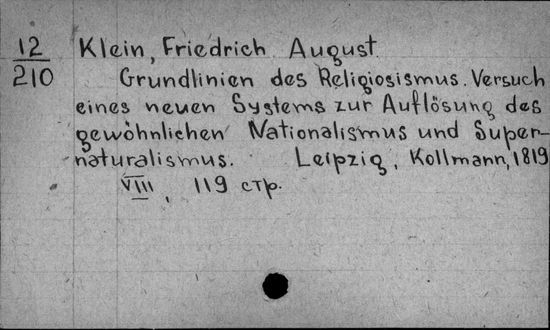 12 Klein, Friedrich August
210 Grundlinien des Religiosismus. Versuch
eines neuen Systems zur Auflösung des
gewöhnlichen Nationalismus und Super-
naturalismus. Leipzig, Kollmann, 1819
VIII, 119 стр.